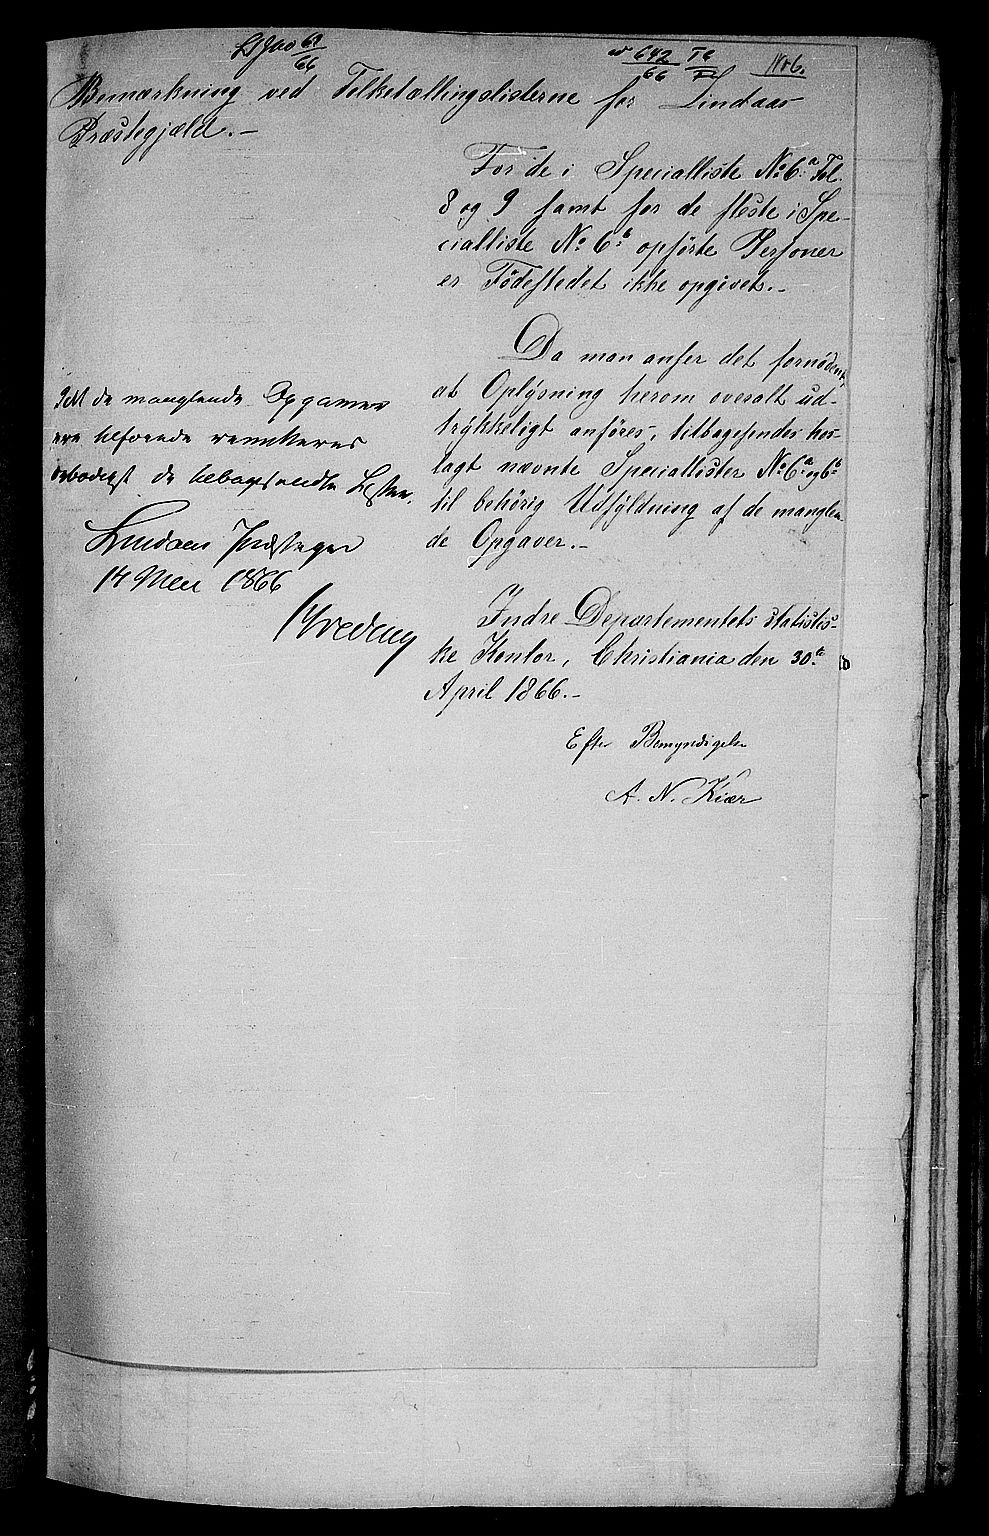 642 Nr 6.
66
Bemærkning ved Folketællingslisterne for Lindaas
Præstegjæld.-
For de i Specialliste No 6.a Fol.
8 og 9 samt for de fleste i Spe-
cialliste No 6b opförte Personer
er Födestedet ikke opgivet.-
Da man anser det fornødent,
at Oplysning herom overalt ud-
trykkeligt anföres, tilbagesendes hos-
lagt nævnte Speciallister No 6a og 6b
til behörig Udfyldning af de manglen
de Opgaver.-
Indre Departementets statistis-
ke Kontor, Christiania den 30te
April 1866.-
Efter Bemyndigelse
A. N. Kiær
de manglende Opgaver
ere tilföiede remitteres
ærbødigst de tilbagesendte Lister.
Lindaas Præstegaar
14 Mai 1866